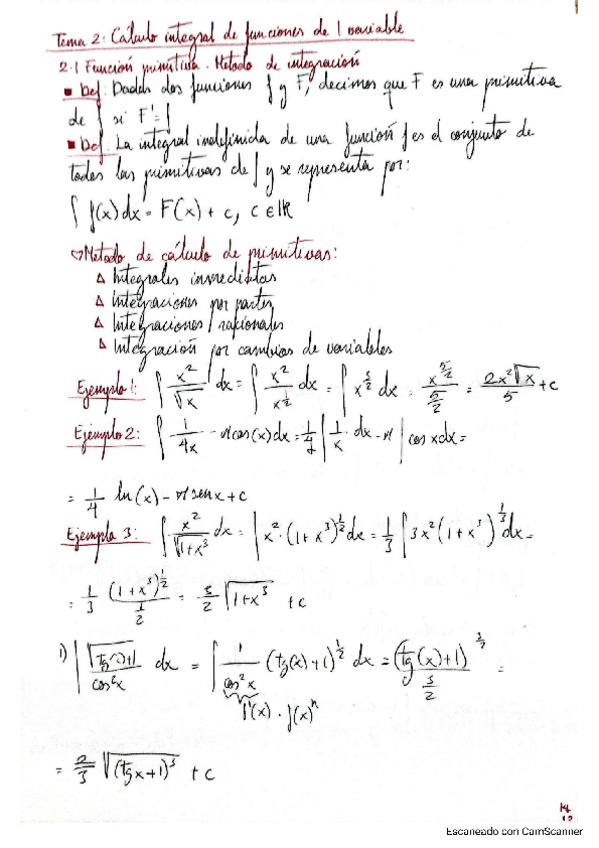 Tema 2: Cálculo integral de funciones de 1 variable
2.1 Función primitiva. Metodo de integración
▪ Def: Dadas dos funciones f y F, decimos que F es una primitiva
de f si F' = f
▪ Def: La integral indefinida de una función f es el conjunto de
todas las primitivas de f y se representa por:
∫ f(x) dx = F(x) + c, c ∈ ℝ
Metodo de cálculo de primitivas:
Δ Integrales inmediatas
Δ integraciones por partes
Δ Integraciones racionales
Δ Integración por cambios de variables
Ejemplo 1: ∫ x²/√x dx = ∫ x²/x^(1/2) dx = ∫ x^(3/2) dx = x^(5/2)/(5/2) = 2x²√x/5 + c
Ejemplo 2: ∫ 1/4x - π cos(x) dx = 1/4 ∫ 1/x dx - π ∫ cos x dx =
= 1/4 ln(x) - π sen x + c
Ejemplo 3: ∫ x²/√(1+x³) dx = ∫ x² · (1+x³)^(1/2) dx = 1/3 ∫ 3x² (1+x³)^(1/3) dx =
= 1/3 (1+x³)^(1/2)/(1/2) = 3/2 √(1+x³) + c
1) ∫ √(tg(x)+1)/cos²x dx = ∫ 1/cos²x (tg(x)+1)^(1/2) dx = (tg(x)+1)^(3/2)/(3/2) =
f'(x) · f(x)ⁿ
= 2/3 √(tgx+1)³ + c
Escaneado con CamScanner